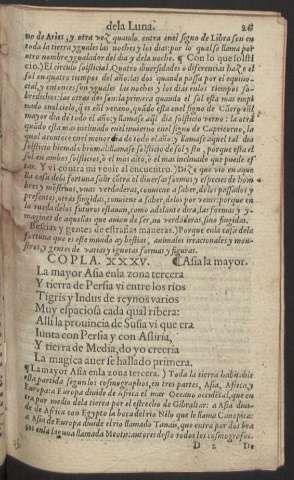 dela Luna. 26
no de Aries, y otra vez quando entra enel signo de Libra son en
toda la tierra yguales las noches y los dias: por lo qual se llama por
otro nombre ygualador del dia y dela noche. ¶ Con lo que solsti
cio.) El circulo solsticial. Quatro diuersidades o diferencias haze el
sol en quatro tiempos del año: las dos quando passa por el equino-
cial, y entonces son yguales las noches y los dias enlos tiempos so
bredichos: las otras dos son la primera quando el sol esta mas
enel verano, quãdo esta enel signo de
mayor dia de todo el año y llamase aqui dia solsticio verno: la otra
quãdo esta enel signo de Capricornio, la
qual acontece enel menor dia de todo el año y llamase aquel tal dia
solsticio hiemal: llamase solsticio de sol y sto, porque esta el
sol en ambos solsticios, o el mas alto, o el mas inclinado que puede es
tar. Y vi contra mi venir al encuentro.) Dize que vio en aque
lla casa dela fortuna salir diuersas formas y especies de hom
bres y mõstruos, vnas verdaderas, conuiene a saber, delos passados y
presentes, otras fingidas, conuiene a saber, delos por venir: porque en
la verdad delos futuros estauan, como adelante dira, las formas y y-
magines de aquellos que auian de ser, no verdaderas, sino fingidas.
Bestias y de estrañas maneras.) Porque enla casa dela
fortuna que es este mundo ay bestias, animales irracionales y mons-
truos, y gentes de varias y ignotas formas y figuras.
COPLA. XXXV. ¶Asia la mayor.
La mayor Asia enla zona tercera
Y tierra de Persia vi entre los rios
Tigris y Indus de reynos varios
Muy espaciosa cada qual ribera:
Alli la prouincia de Susia vi que era
Iunta con Persia y con Asiria,
Y tierra de Media, do yo creeria
La magica auer se hallado primera.
¶La mayor Asia enla zona tercera.) Toda la tierra habitable
esta partida segun los cosmographos, en tres partes, Asia, Africa, y
Europa: a Europa diuide de Africa el mar Oceano occidẽtal, que en
tra por medio dela tierra por el estrecho de Gibraltar: a Asia diui-
de de Africa con Egypto la boca del rio Nilo que se llama Canopica:
a Asia de Europa diuide el rio llamado Tanais, que entra por dos bra
ços enla laguna llamada Meotis: autores desto todos los cosmografos.
D 2 De